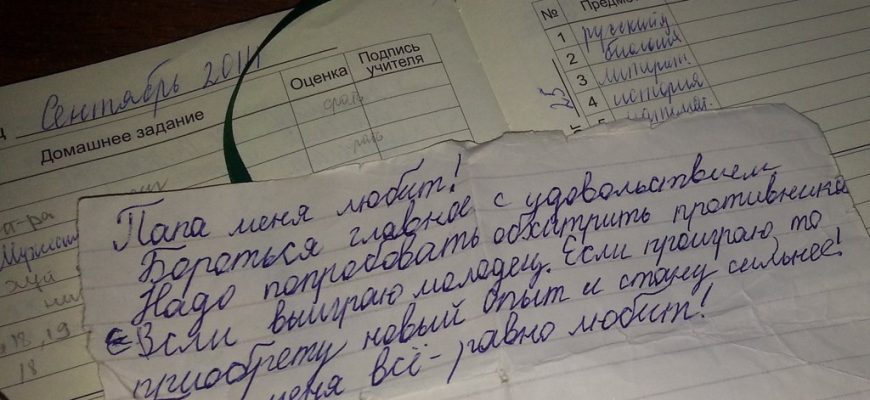 Сентябрь 2011
Домашнее задание
Оценка
Подпись учителя
№
1 русский
2
3 литерат.
4 история
25
18, 19
18
Папа меня любит!
Бороться главное с удовольствием
Надо попробовать обхитрить противника
Если выиграю молодец. Если проиграю то
приобрету новый опыт и стану сильнее!
меня всё-равно любит!